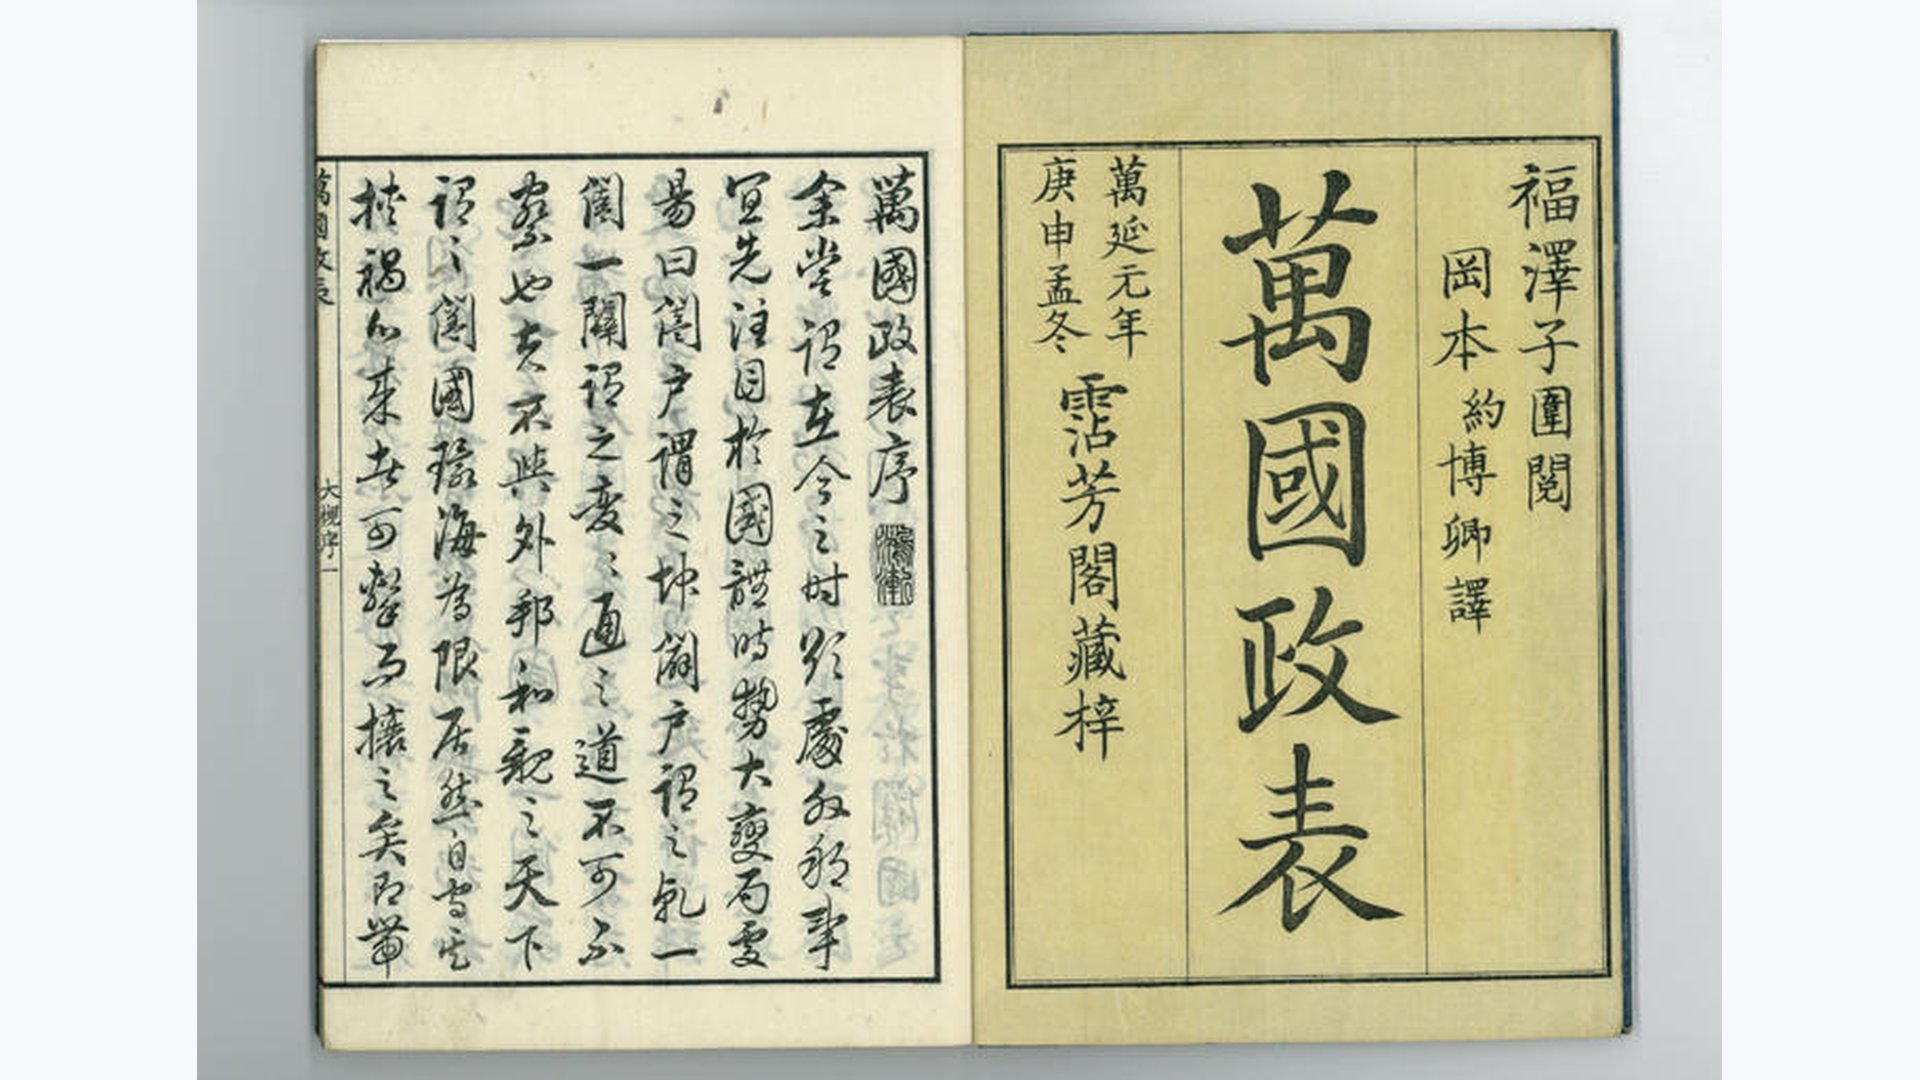 福澤子圍閲
岡本約博卿譯
萬國政表
萬延元年
庚申孟冬
霑芳閣藏梓
萬國政表序
余嘗謂在今之時欲處外邦事
宜先注目於國體時勢大變局
易曰闔戶謂之坤闢戶謂之乾一
闔一闢謂之変〻通之道不可不
察也夫不與外邦和親之天下
謂之闔國環海為限居然自守其
挾禍心来者可擊而攘之矣即帯
萬國政表
大槻序一